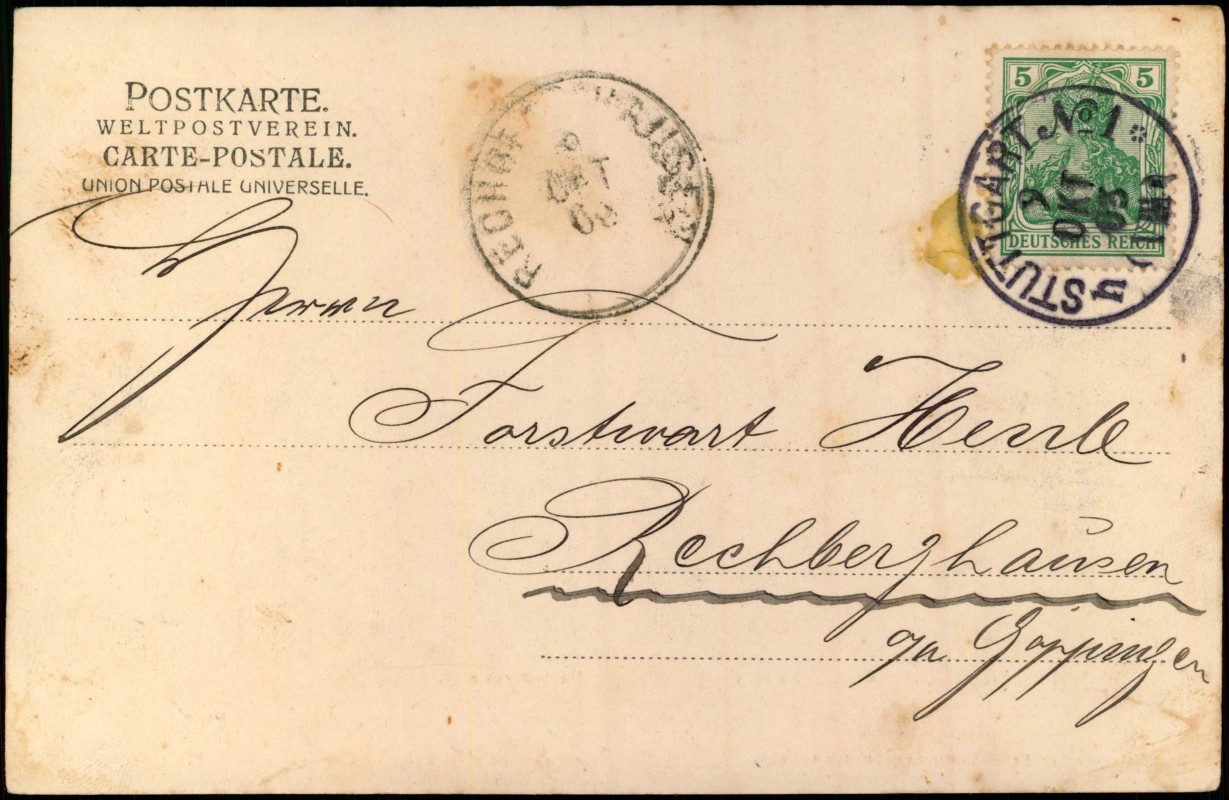 POSTKARTE.
WELTPOSTVEREIN.
CARTE-POSTALE.
UNION POSTALE UNIVERSELLE.
OKT
03
5 5
DEUTSCHES REICH
STUTTGART. No 1
9
OKT
03
Herrn
Forstwart Henle
Rechberghausen
Göppingen